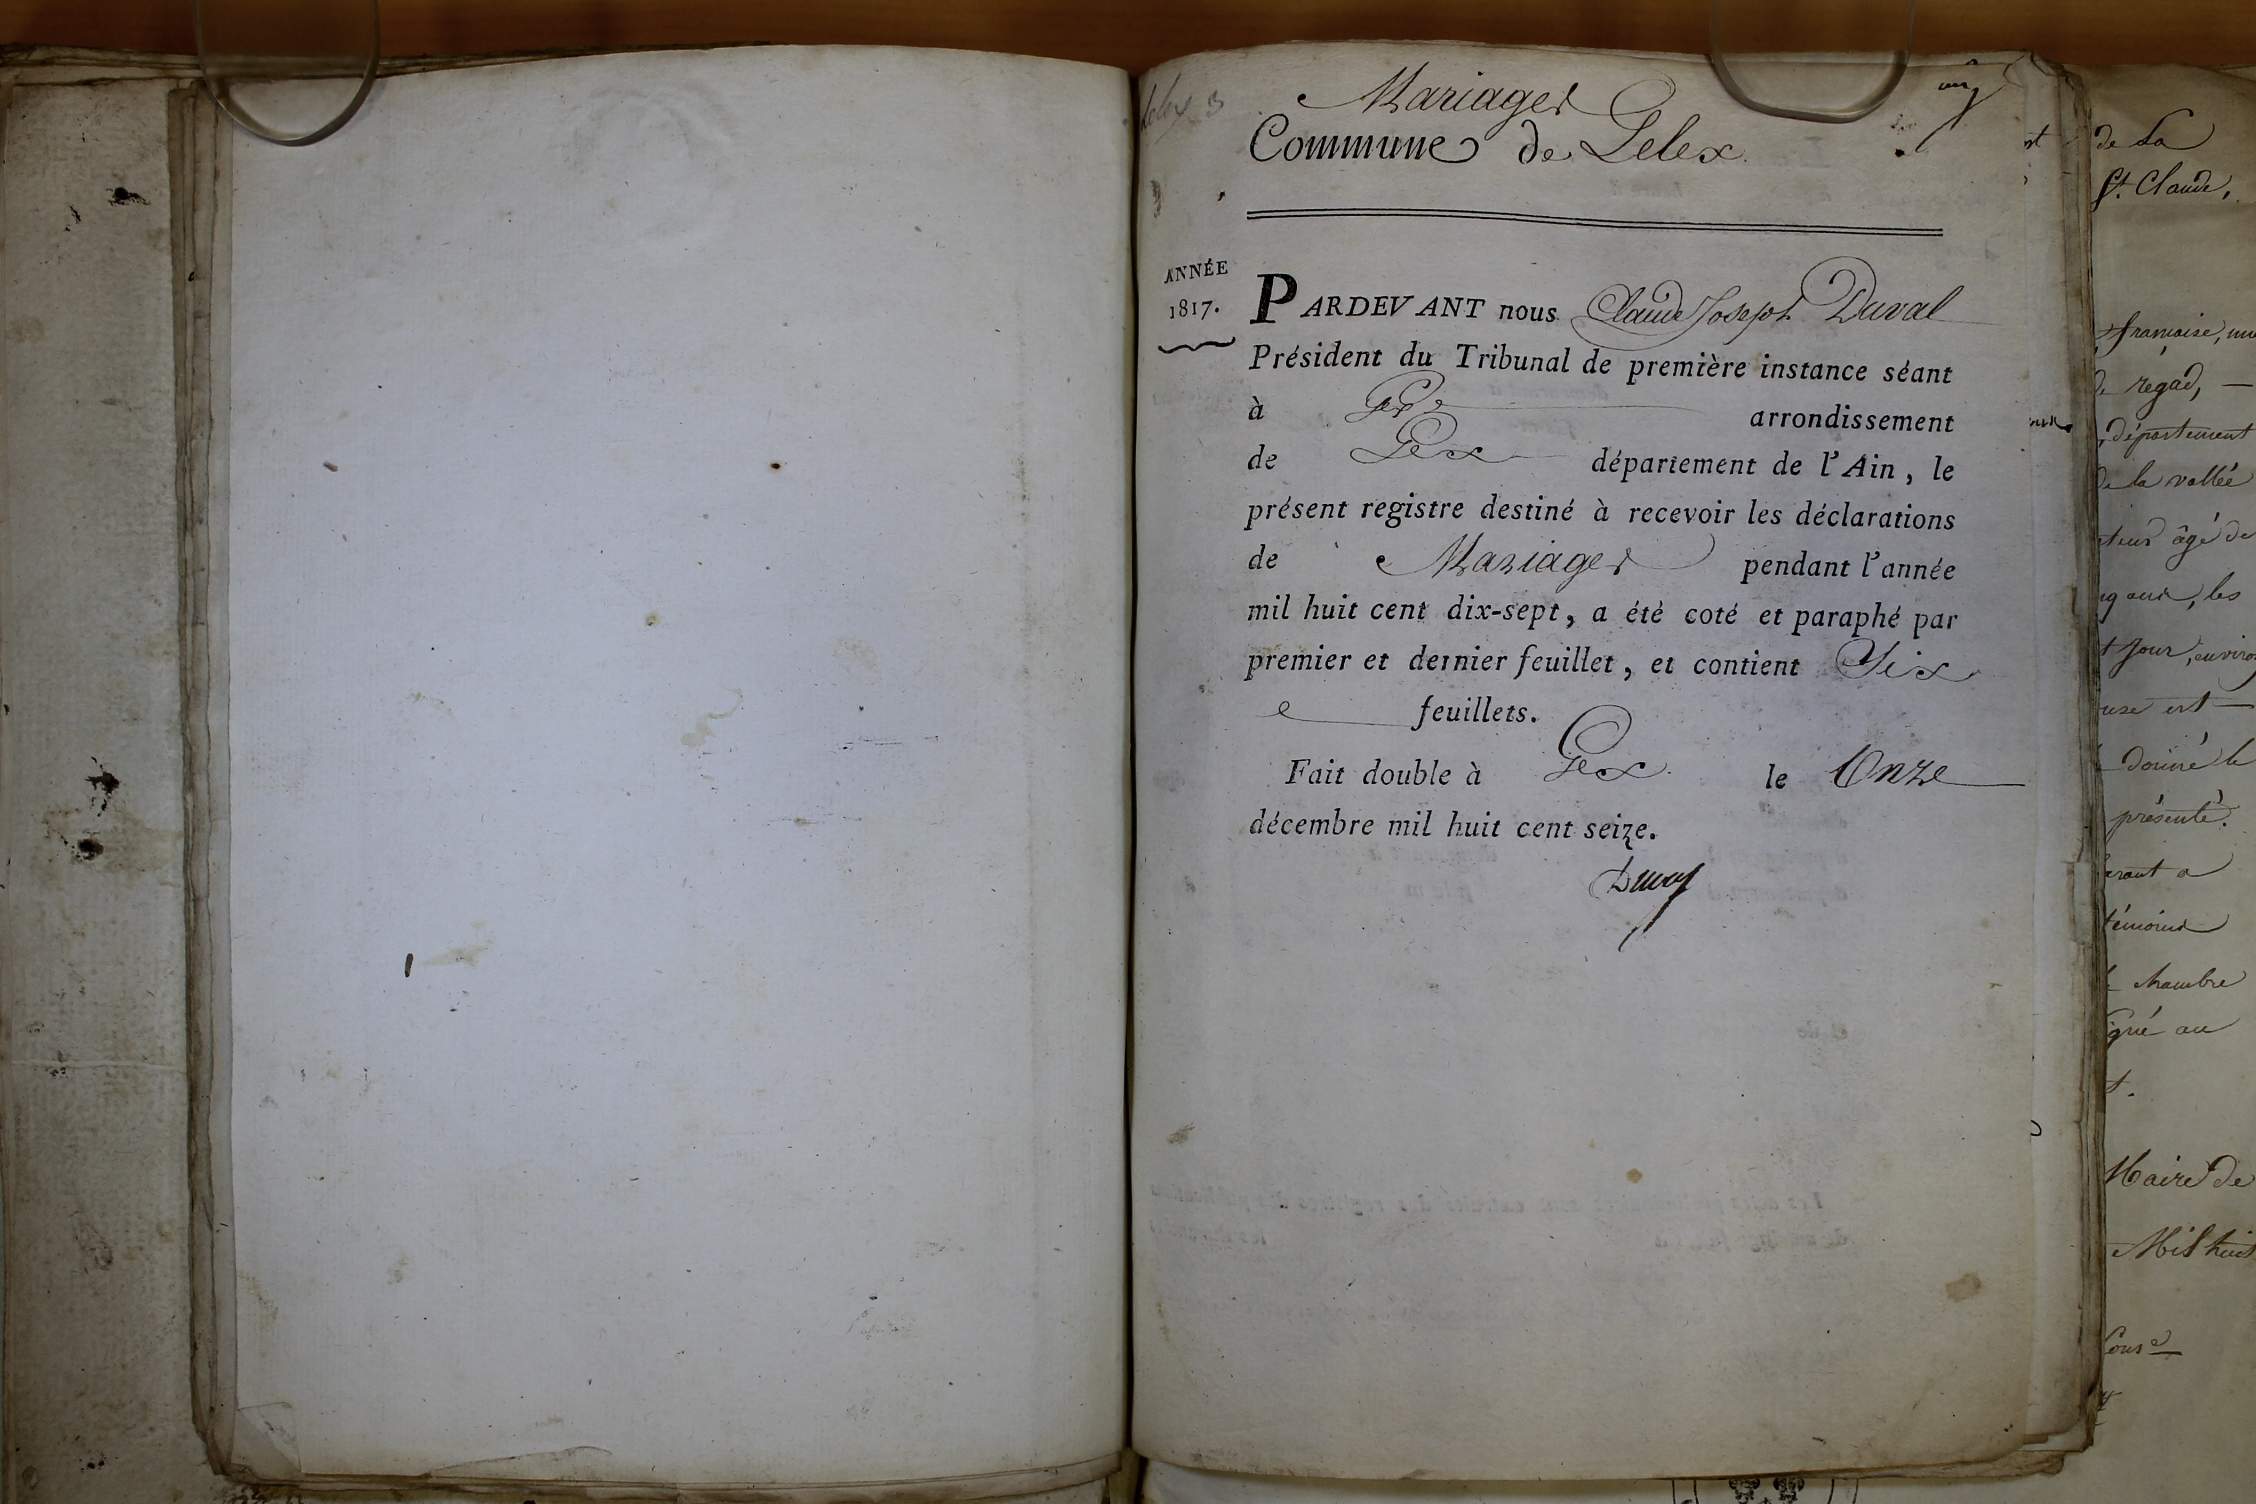 Lelex 3
Mariages
Commune de Lelex.
ANNÉE
1817.
PARDEVANT nous Claude Joseph Duval
Président du Tribunal de première instance séant
à Gex arrondissement
de Gex département de l'Ain, le
présent registre destiné à recevoir les déclarations
de Mariages pendant l'année
mil huit cent dix-sept, a été coté et paraphé par
premier et dernier feuillet, et contient Six
feuillets.
Fait double à Gex. le Onze
décembre mil huit cent seize.
Duval
de La
St. Claude,
française,
regad, —
département
de la vallée
âgé de
les
Jour, environ
est —
donné le
présenté.
a
témoins
chambre
au
Maire de
Mil huit